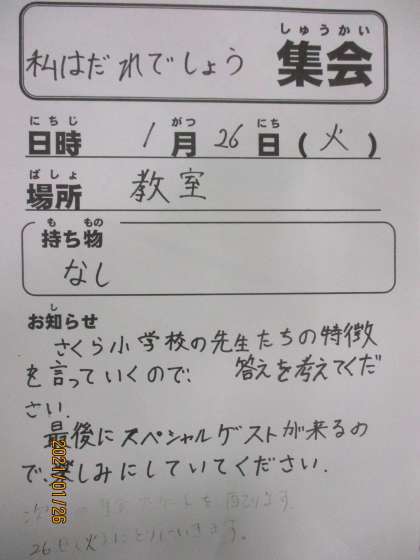 しゅうかい
私はだれでしょう 集会
にちじ がつ にち
日時 1月26日(火)
ばしょ
場所 教室
も もの
持ち物
なし
し
お知らせ
さくら小学校の先生たちの特徴
を言っていくので、 答えを考えてくだ
さい.
最後にスペシャルゲストが来るの
で、楽しみにしていてください.
2021/01/26